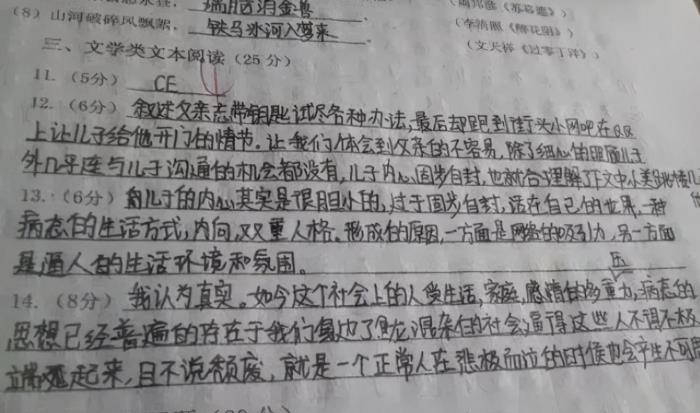 瑞脑消金兽
(8) 山河破碎风飘絮, 铁马冰河入梦来 (文天祥《过零丁洋》)
三、文学类文本阅读 (25 分)
11. (5分) CE
12. (6分) 叙述父亲忘带钥匙试尽各种办法,最后却跑到街头小网吧在QQ
上让儿子给他开门的情节。让我们体会到父亲的不容易,除了细心的照顾儿子
外几乎连与儿子沟通的机会都没有,儿子内心固步自封,也就合理解了作文中
13. (6分) 儿子的内心其实是很胆小的,过于固步自封,活在自己的世界,一种
病态的生活方式,内向,双重人格。形成的原因,一方面是网络的吸引力,另一方面
是逼人的生活环境和氛围。
14. (8分) 我认为真实。如今这个社会上的人受生活,家庭,感情的多重压力,病态的
思想已经普遍的存在于我们身边了鱼龙混杂的社会逼得这些人不得不极
端起来,且不说颓废,就是一个正常人在悲极而泣的时候也会产生不可